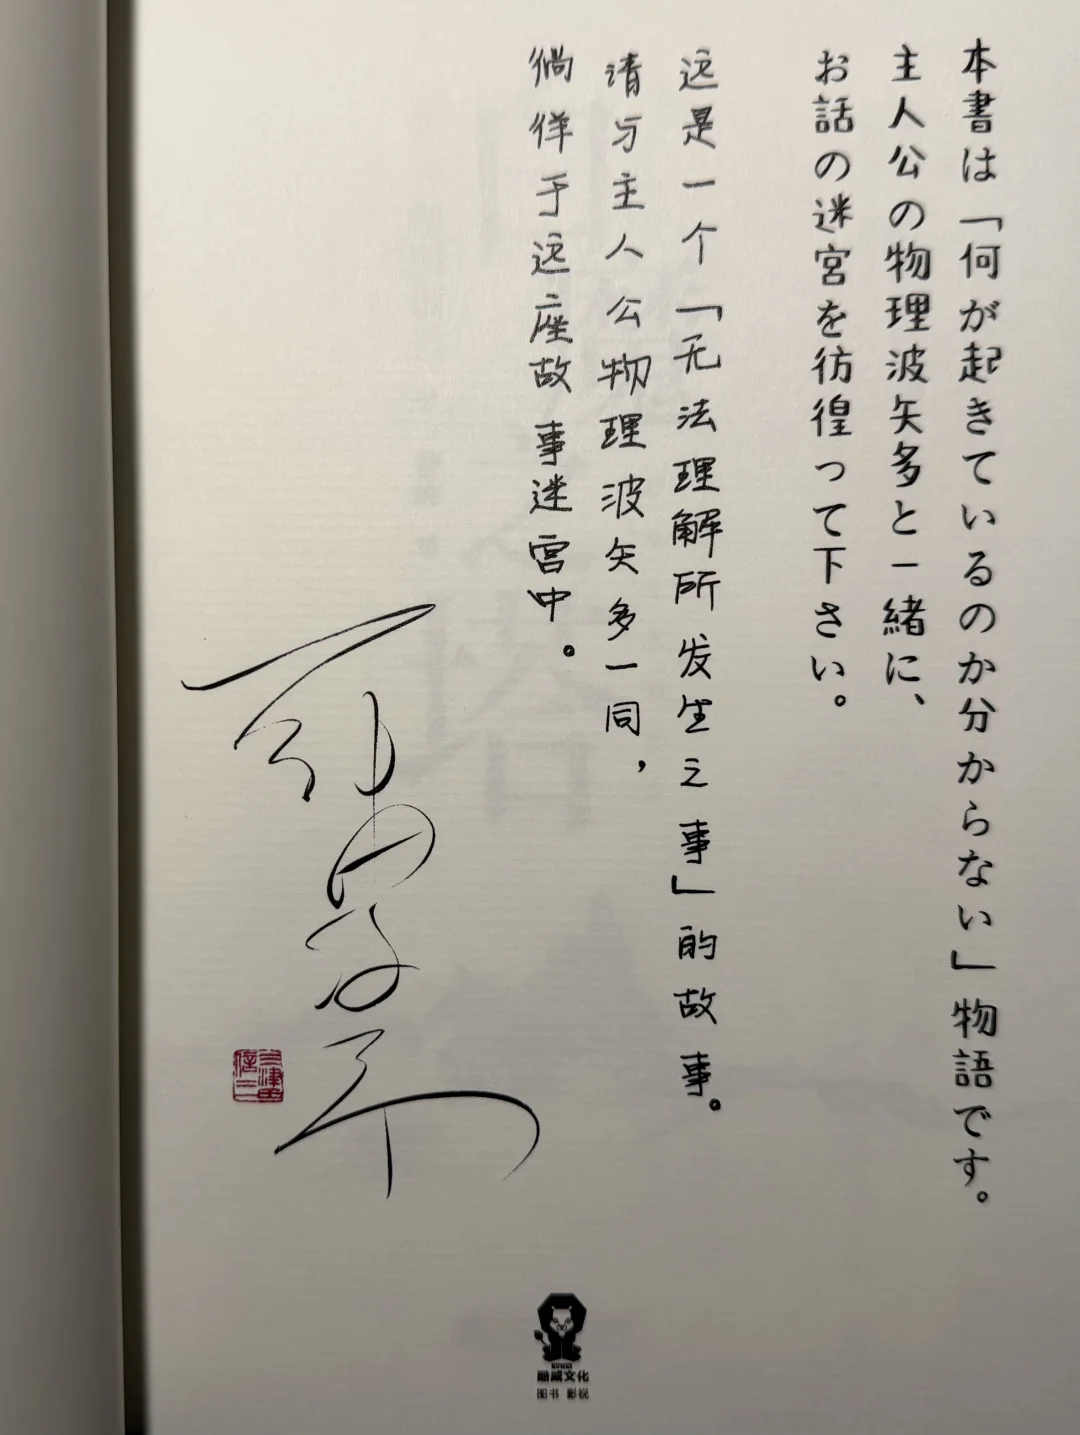 本書は「何が起きているのか分からない」物語です。
主人公の物理波矢多と一緒に、
お話の迷宮を彷徨って下さい。
这是一个「无法理解所发生之事」的故事。
请与主人公物理波矢多一同，
徜徉于这座故事迷宫中。
三津田
信三
KUWEI
酷威文化
图书 影视